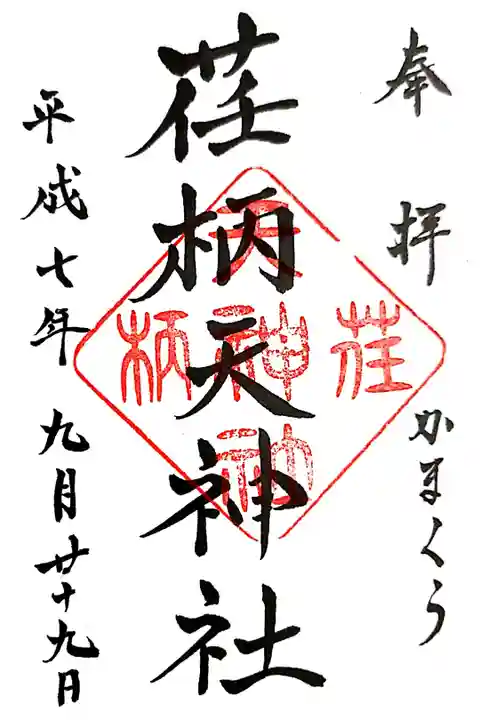 奉拝 かまくら
荏柄天神社
平成七年 九月廿十九日
荏
天神社
柄